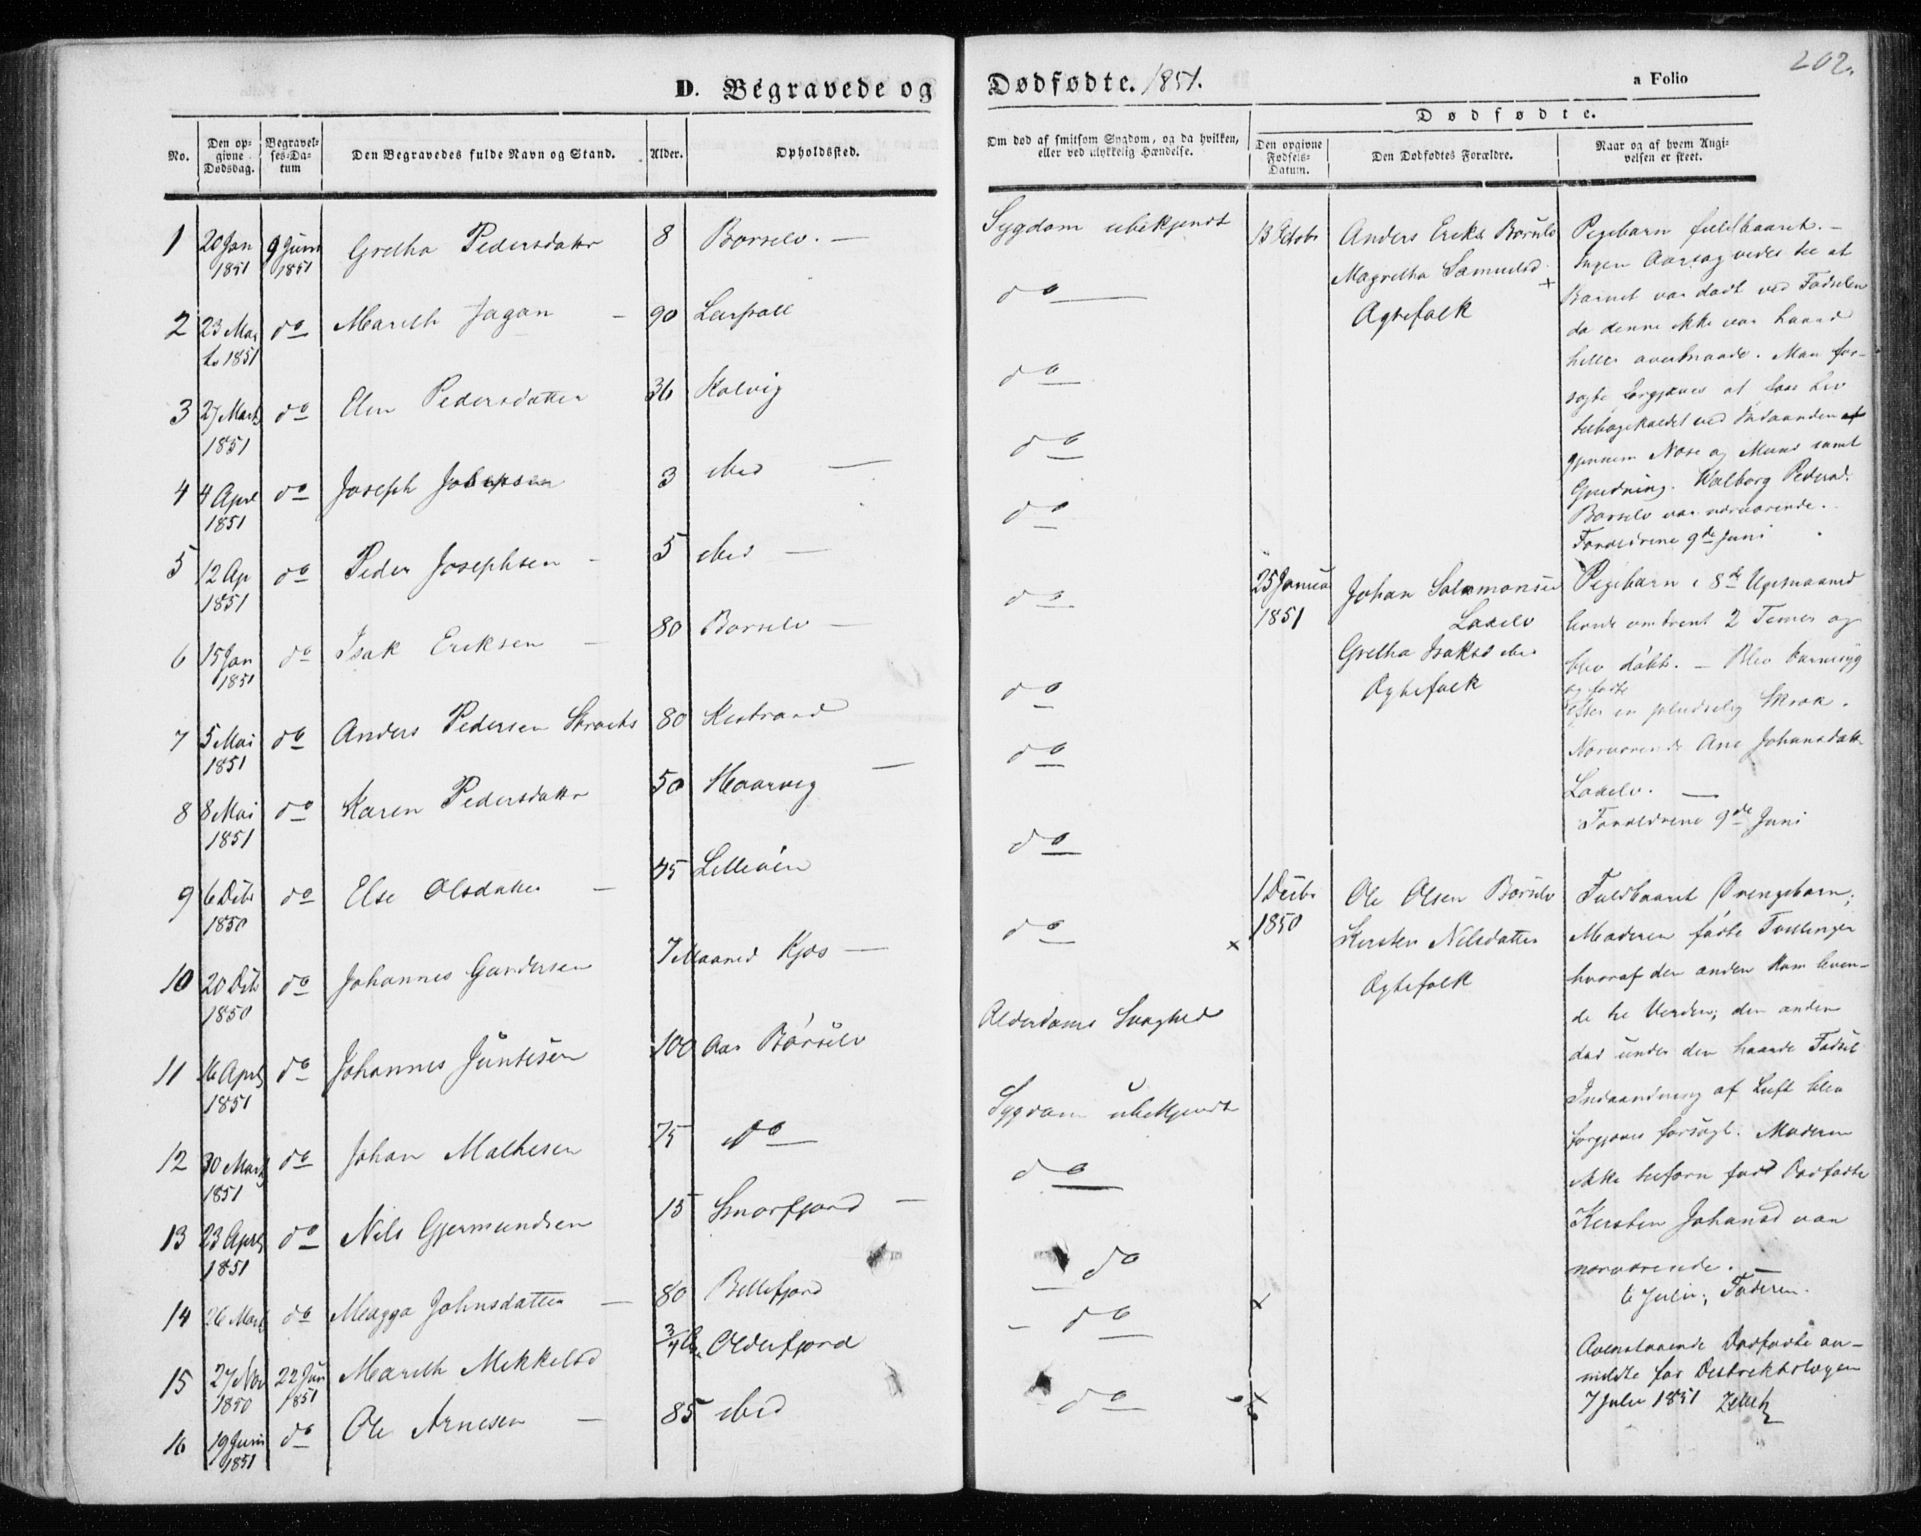 202.
D. Begravede og Dødfødte. 1851.
a Folio
No.
Den opgivne Dødsdag.
Begravelses-Datum
Den Begravedes fulde Navn og Stand.
Alder.
Opholdssted.
Om død af smitsom Sygdom, og da hvilken, eller ved ulykkelig Hændelse.
Dødfødte.
Den opgivne Fødsels-Datum.
Den Dødfødtes Forældre.
Naar og af hvem Angivelsen er skeet.
1 20 Jan 1851 9 Juni 1851 Gretha Pedersdattr 8 Børselv. — Sygdom ubekjendt
2 23 Marts 1851 do Mareth Jagan — 90 do
3 27 Marts 1851 do Elen Pedersdatter 36 Kolvig do
4 4 Apr 1851 do Joseph Josepsen 3 ibid — do
5 12 Ap 1851 do Peder Josephsen — 5 ibid — do
6 15 Jan 1851 do Isak Eriksen — 80 Børselv — do
7 5 Mai 1851 do Anders Pedersen 80 Kistrand do
8 8 Mai 1851 do Karen Pedersdattr 50 Haarvig — do
9 6 Decbr 1850 do Else Olsdatter — 45 do
10 20 Decbr 1850 do Johannes Gundersen 7 Maaned Kjøs — do
11 16 April 1851 do Johannes 100 Aar Børselv Alderdoms Svaghed
12 30 Marts 1851 do Johan Mathesen 75 do Sygdom ubekjendt
13 23 April 1851 do Nils Gjermundsen 15 Smørfjord — do
14 26 Marts do Magga Johnsdatter — 80 Billefjord do
15 27 Nov 1850 22 Jun 1851 Mareth Mikkelsd 3/4 Olderfjord do
16 19 Juni 1851 do Ole Arnesen — 85 ibid do
13 Anders Eriks Børselv
Magretha Samuelsd.
Ægtefolk
Pigebarn fuldbaaret. —
Ingen Aarsag vides til at
Barnet var dødt ved Fødselen
da denne ikke var haard
heller overmaade. Man for-
søgte forgjæves at faae Liv
tilbagekaldet ved Indaanden af
gjennem Næse og Mund samt
Gnidning. Walborg Pedersd.
Børselv var nærværende.
Forældrene 9de Juni
25 Januar 1851 Johan Salamonsen
Laxelv
Gretha Isaksd ibid
Ægtefolk
Pigebarn i 8de
levde omtrent 2 Timer og
blev døbt. — Blev barnsyg
og fødte
efter en pludselig Skræk.
Nærværende Ane Johansdatt
Laxelv. —
Forældrene 9de Juni
1 Decbr 1850 Ole Olsen Børselv
Kirsten Nilsdatter
Ægtefolk
Fuldbaaret Drengebarn;
Moderen fødte Tvillinger
hvoraf den anden kom leven-
de til Verden; den anden
død under den haarde Fødsel
Indaandning af Luft blev
forgjæves forsøgt. Moderen
ikke tilforn født Dødfødte
Kirsten Johansd var
nærværende.
6 Juli, Faderen.
Ovenstaaende Dødfødte an-
meldte for Distriktslægen
7 Juli 1851